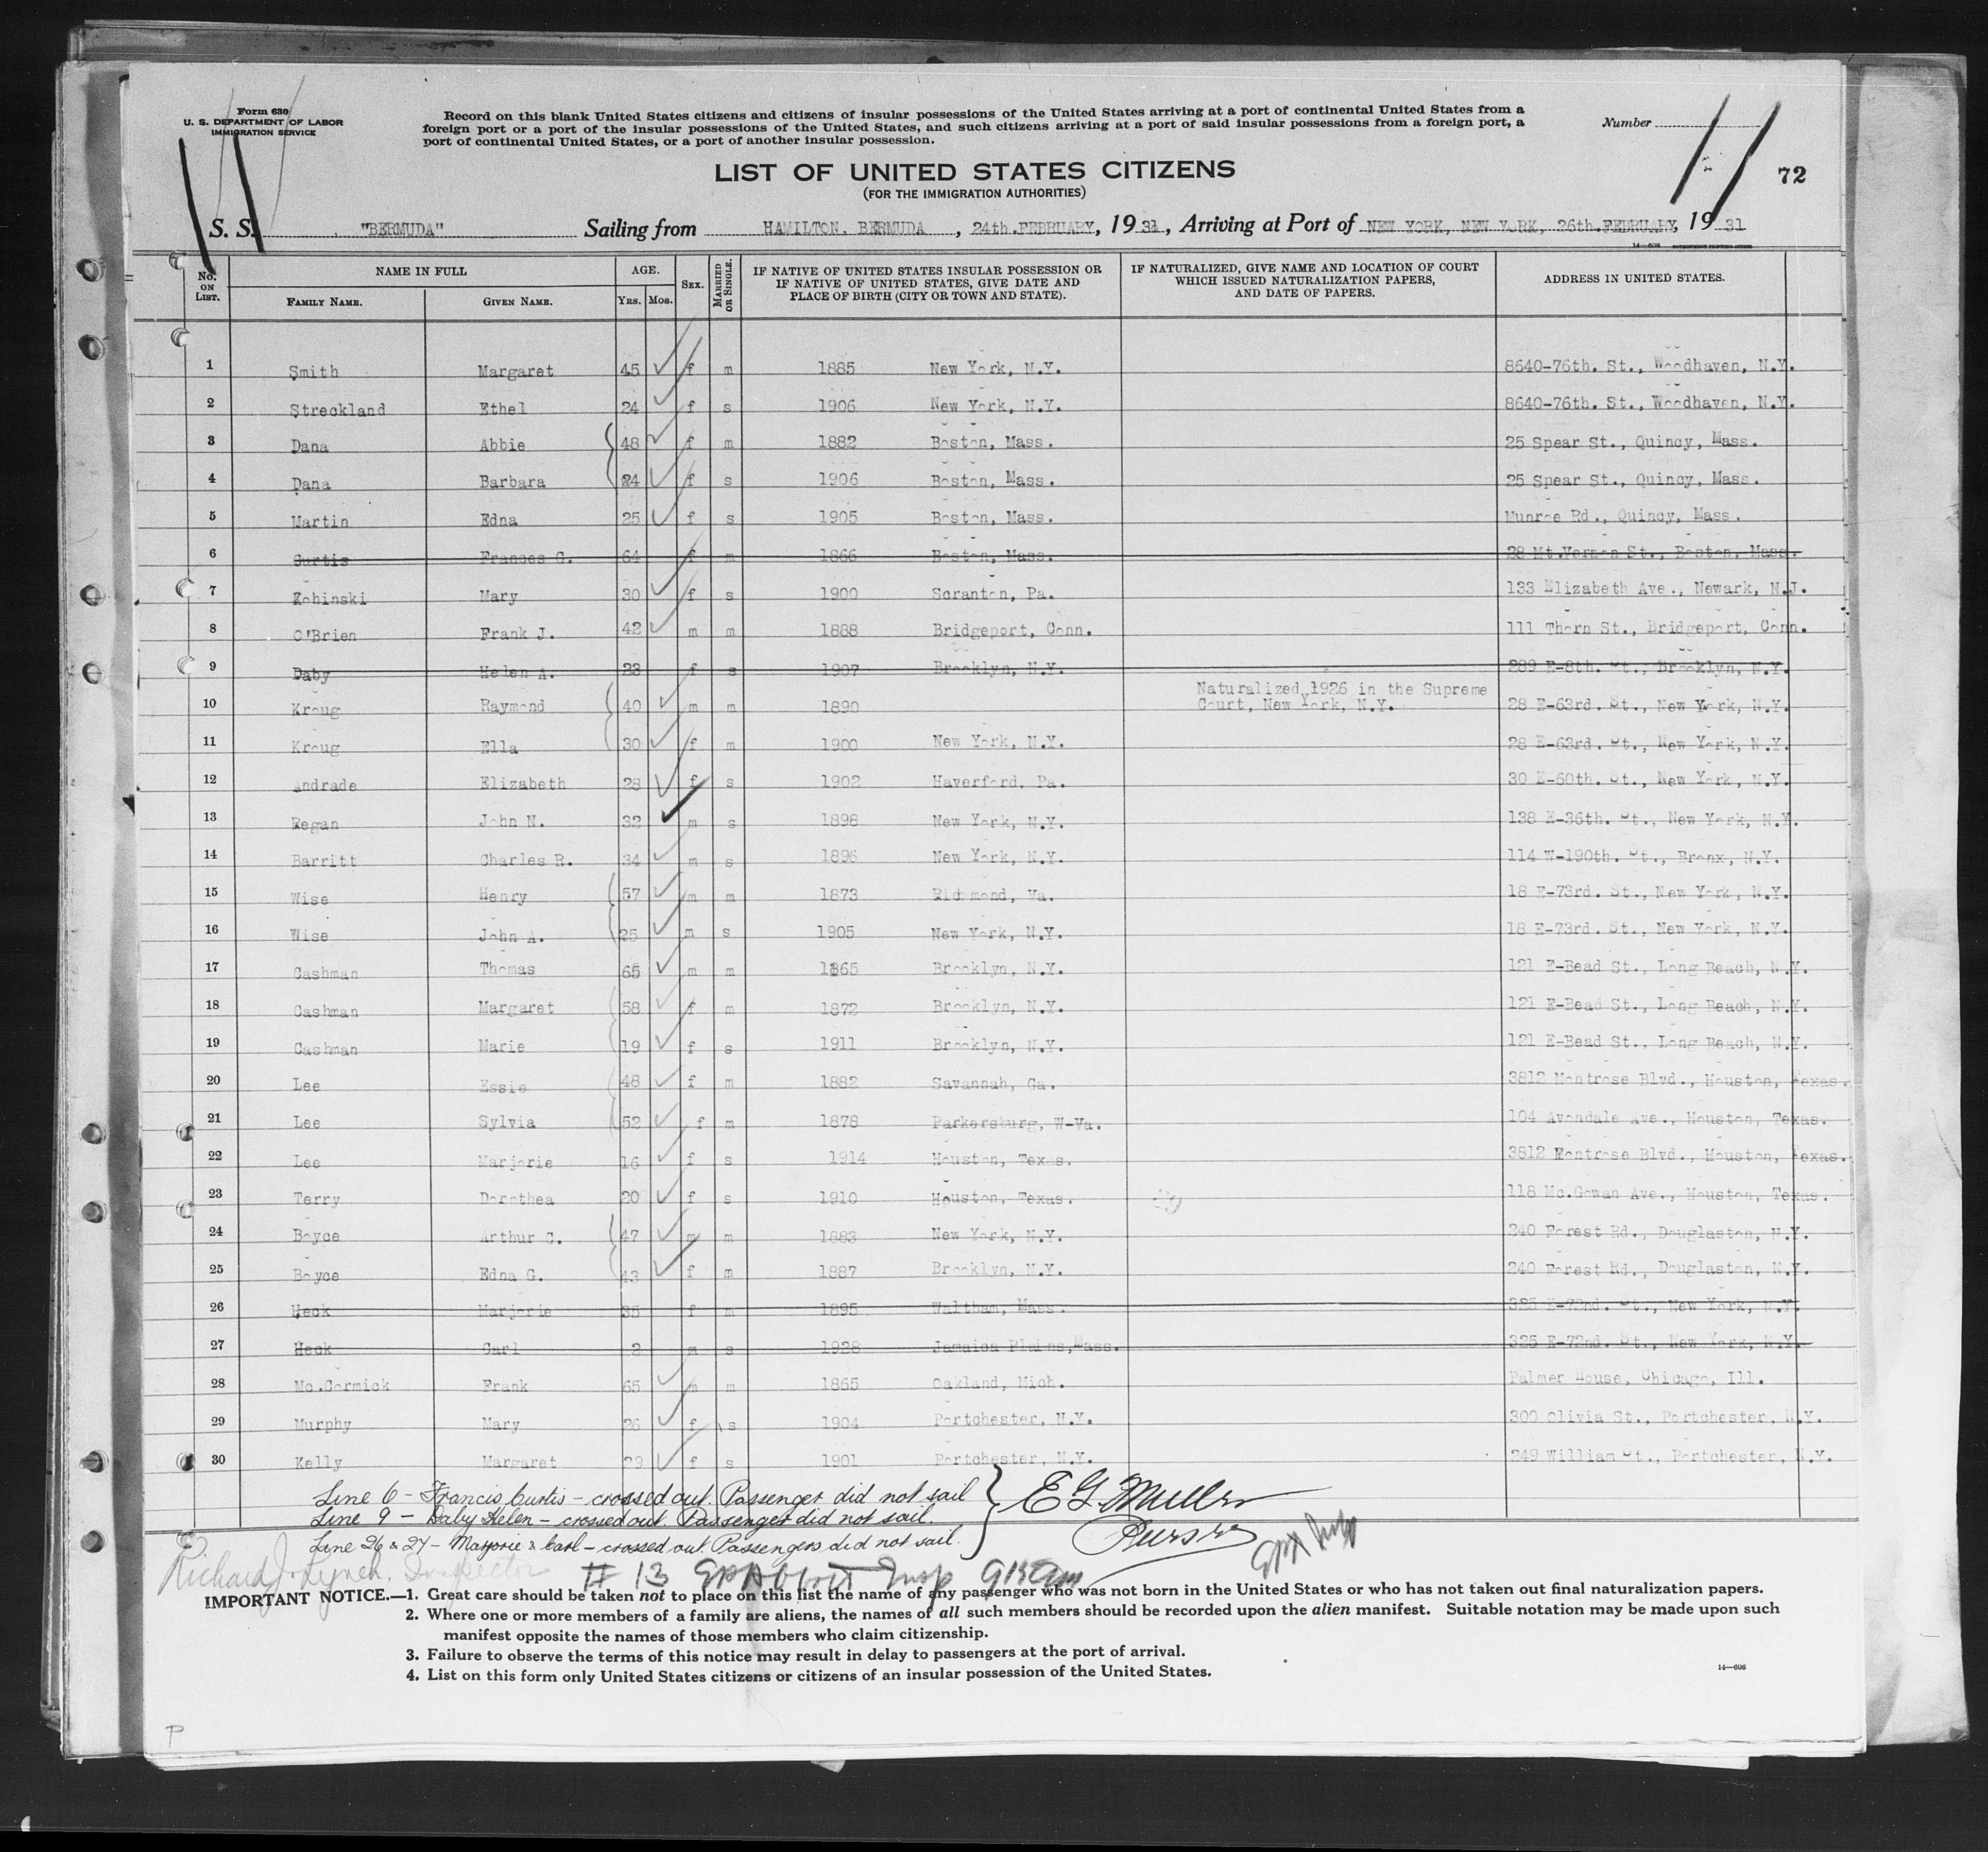 Form 630
U. S. DEPARTMENT OF LABOR
IMMIGRATION SERVICE
Record on this blank United States citizens and citizens of insular possessions of the United States arriving at a port of continental United States from a
foreign port or a port of the insular possessions of the United States, and such citizens arriving at a port of said insular possessions from a foreign port, a
port of continental United States, or a port of another insular possession.
Number
72
LIST OF UNITED STATES CITIZENS
(FOR THE IMMIGRATION AUTHORITIES)
S. S. "BERMUDA" Sailing from HAMILTON. BERMUDA , 24th.FEBRUARY, 1931, Arriving at Port of NEW YORK, NEW YORK, 26th.FEBRUARY, 1931
14—608
No. ON LIST. NAME IN FULL FAMILY NAME. GIVEN NAME. AGE. YRS. MOS. SEX. MARRIED OR SINGLE. IF NATIVE OF UNITED STATES INSULAR POSSESSION OR IF NATIVE OF UNITED STATES, GIVE DATE AND PLACE OF BIRTH (CITY OR TOWN AND STATE). IF NATURALIZED, GIVE NAME AND LOCATION OF COURT WHICH ISSUED NATURALIZATION PAPERS, AND DATE OF PAPERS. ADDRESS IN UNITED STATES.
1 Smith Margaret 45 f m 1885 New York, N.Y. 8640-76th. St., Woodhaven, N.Y.
2 Streckland Ethel 24 f s 1906 New York, N.Y. 8640-76th. St., Woodhaven, N.Y.
3 Dana Abbie 48 f m 1882 Boston, Mass. 25 Spear St., Quincy, Mass.
4 Dana Barbara 24 f s 1906 Boston, Mass. 25 Spear St., Quincy, Mass.
5 Martin Edna 25 f s 1905 Boston, Mass. Munroe Rd., Quincy, Mass.
6 Curtis Frances G. 64 f m 1866 Boston, Mass. 28 Mt.Vernon St., Boston, Mass.
7 Kohinski Mary 30 f s 1900 Scranton, Pa. 133 Elizabeth Ave., Newark, N.J.
8 O'Brien Frank J. 42 m m 1888 Bridgeport, Conn. 111 Thorn St., Bridgeport, Conn.
9 Daby Helen A. 23 f s 1907 Brooklyn, N.Y. 289 E-8th. St., Brooklyn, N.Y.
10 Kroug Raymond 40 m m 1890 Naturalized 1926 in the Supreme Court, New York, N.Y. 28 E-63rd. St., New York, N.Y.
11 Kroug Ella 30 f m 1900 New York, N.Y. 28 E-63rd. St., New York, N.Y.
12 Andrade Elizabeth 28 f s 1902 Haverford, Pa. 30 E-60th. St., New York, N.Y.
13 Regan John N. 32 m s 1898 New York, N.Y. 138 E-36th. St., New York, N.Y.
14 Barritt Charles R. 34 m s 1896 New York, N.Y. 114 W-190th. St., Bronx, N.Y.
15 Wise Henry 57 m m 1873 Richmond, Va. 18 E-73rd. St., New York, N.Y.
16 Wise John A. 25 m s 1905 New York, N.Y. 18 E-73rd. St., New York, N.Y.
17 Cashman Thomas 65 m m 1865 Brooklyn, N.Y. 121 E-Bead St., Long Beach, N.Y.
18 Cashman Margaret 58 f m 1872 Brooklyn, N.Y. 121 E-Bead St., Long Beach, N.Y.
19 Cashman Marie 19 f s 1911 Brooklyn, N.Y. 121 E-Bead St., Long Beach, N.Y.
20 Lee Essie 48 f m 1882 Savannah, Ga. 3812 Montrose Blvd., Houston, Texas.
21 Lee Sylvia 52 f m 1878 Parkersburg, W-Va. 104 Avondale Ave., Houston, Texas.
22 Lee Marjorie 16 f s 1914 Houston, Texas. 3812 Montrose Blvd., Houston, Texas.
23 Terry Dorothea 20 f s 1910 Houston, Texas. 118 Mc.Gowan Ave., Houston, Texas.
24 Boyce Arthur C. 47 m m 1883 New York, N.Y. 240 Forest Rd., Douglaston, N.Y.
25 Boyce Edna G. 43 f m 1887 Brooklyn, N.Y. 240 Forest Rd., Douglaston, N.Y.
26 Heck Marjorie 35 f m 1895 Waltham, Mass. 325 E-72nd. St., New York, N.Y.
27 Heck Carl 2 m s 1928 Jamaica Plains,Mass. 325 E-72nd. St., New York, N.Y.
28 Mc.Cormick Frank 65 m m 1865 Oakland, Mich. Palmer House, Chicago, Ill.
29 Murphy Mary 26 f s 1904 Portchester, N.Y. 300 Olivia St., Portchester, N.Y.
30 Kelly Margaret 29 f s 1901 Portchester, N.Y. 249 William St., Portchester, N.Y.
Line 6 – Francis Curtis – crossed out. Passenger did not sail
Line 9 – Daby Helen – crossed out. Passenger did not sail.
Line 26 & 27 – Marjorie & Carl – crossed out. Passengers did not sail.
E G Muller
Purser
Richard J. Lynch. Inspector
# 13 Insp
IMPORTANT NOTICE.—1. Great care should be taken not to place on this list the name of any passenger who was not born in the United States or who has not taken out final naturalization papers.
2. Where one or more members of a family are aliens, the names of all such members should be recorded upon the alien manifest. Suitable notation may be made upon such
manifest opposite the names of those members who claim citizenship.
3. Failure to observe the terms of this notice may result in delay to passengers at the port of arrival.
4. List on this form only United States citizens or citizens of an insular possession of the United States.
14—608
P